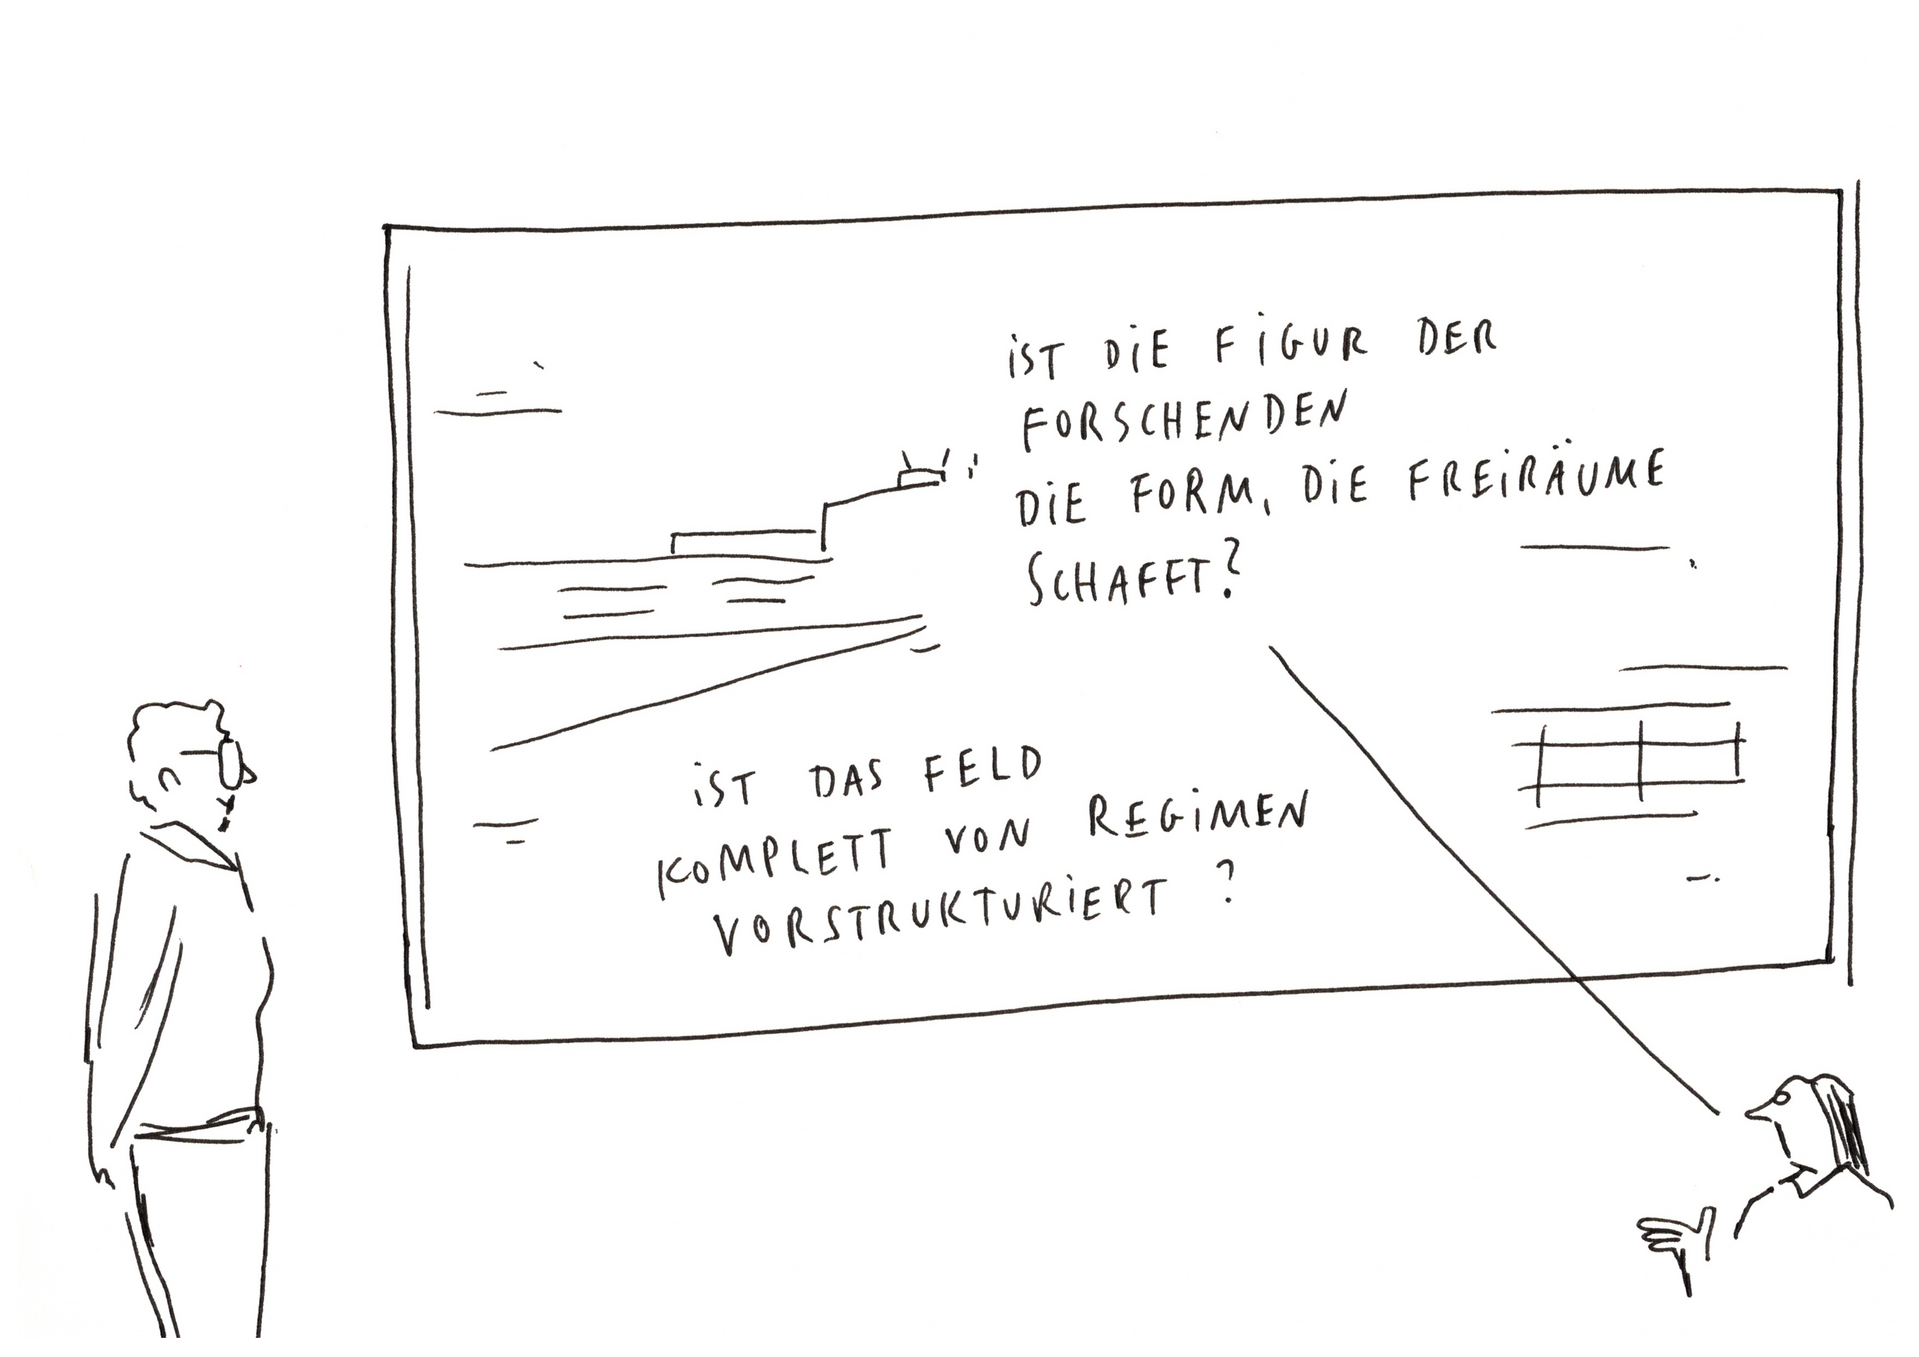 iST DiE FiGUR DER
FORSCHENDEN
DiE FORM, DiE FREiRÄUME
SCHAFFT?
iST DAS FELD
KOMPLETT VON REGiMEN
VORSTRUKTURiERT ?